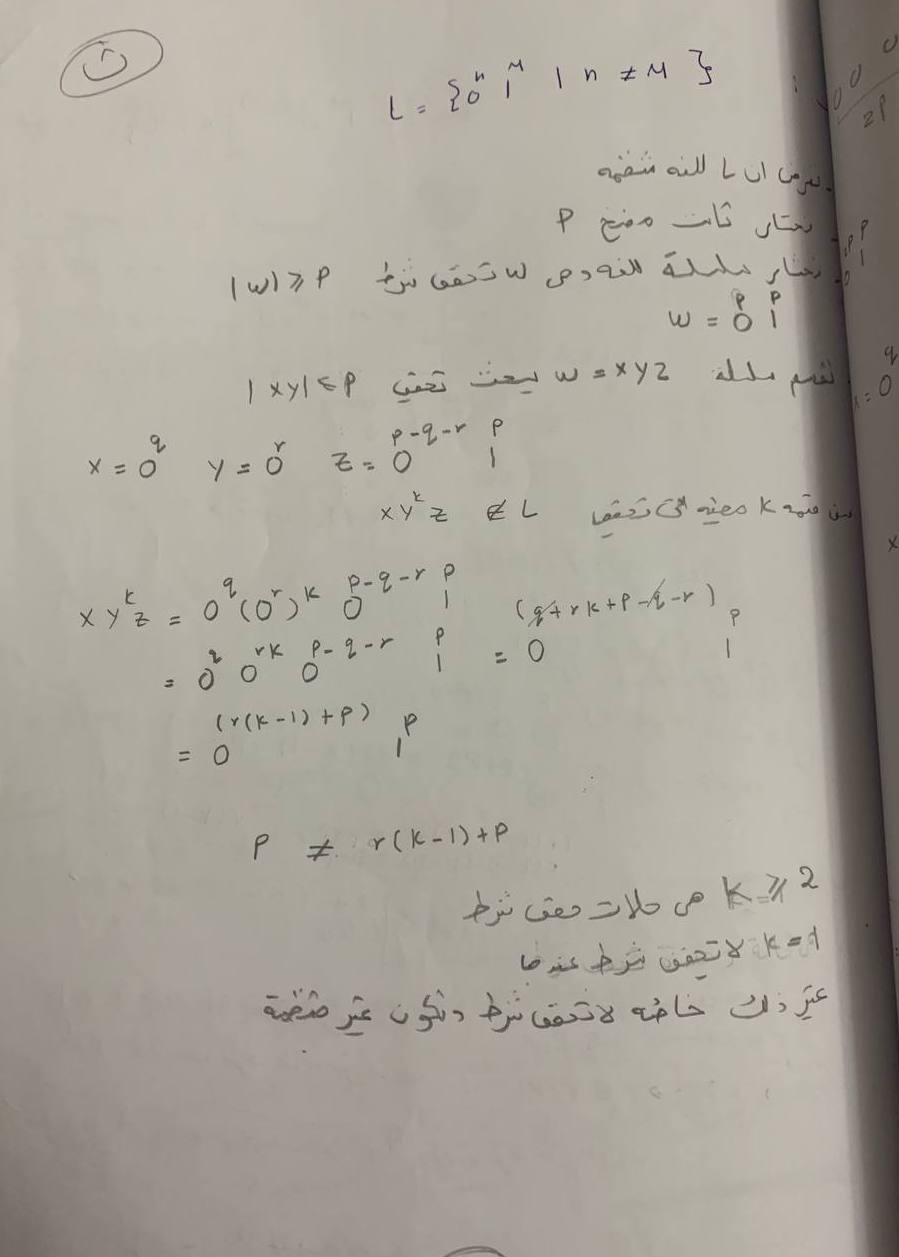 ن
L = {0^n 1^M | n ≠ M }
نفرض ان L للغه منتظمه
نختار ثابت ضخ P
نختار سلسلة اللغه وهي w تحقق شرط |w| ≥ P
W = 0^P 1^P
نقسم سلسلة w = xyz بحيث تحقق |xy| ≤ P
X = 0^q Y = 0^r Z = 0^(P-q-r) 1^P
قيمه k معينه التي تحقق xy^k z ∉ L
xy^k z = 0^q (0^r)^k 0^(P-q-r) 1^P
= 0^q 0^(rk) 0^(P-q-r) 1^P = 0^((q+rk+P-q-r)) 1^P
= 0^((r(k-1)+P)) 1^P
P ≠ r(k-1)+P
k ≥ 2 هي حالات تحقق شرط
k=1 لا تحقق شرط عندما
غير ذلك خاصه لا تحقق شرط وتكون غير منتظمة